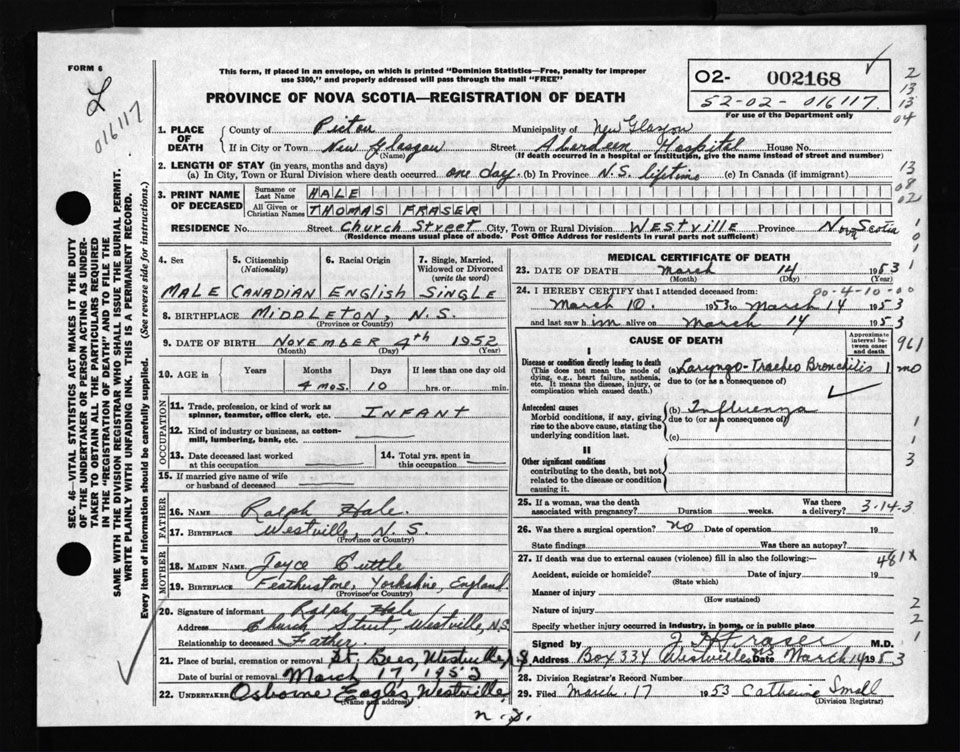 FORM 6
This form, if placed in an envelope, on which is printed "Dominion Statistics—Free, penalty for improper
use $300," and properly addressed will pass through the mail "FREE"
PROVINCE OF NOVA SCOTIA—REGISTRATION OF DEATH
02- 002168
52-02-016117.
For use of the Department only
016117
2
13
13
04
13
08
02
SEC. 46—VITAL STATISTICS ACT MAKES IT THE DUTY
OF THE UNDERTAKER OR PERSON ACTING AS UNDER-
TAKER TO OBTAIN ALL THE PARTICULARS REQUIRED
IN THE "REGISTRATION OF DEATH" AND TO FILE THE
SAME WITH THE DIVISION REGISTRAR WHO SHALL ISSUE THE BURIAL PERMIT.
WRITE PLAINLY WITH UNFADING INK. THIS IS A PERMANENT RECORD.
Every item of information should be carefully supplied. (See reverse side for instructions.)
1. PLACE OF DEATH
County of Pictou Municipality of New Glasgow
If in City or Town New Glasgow Street Aberdeen Hospital House No.
(Name) (If death occurred in a hospital or institution, give the name instead of street and number)
2. LENGTH OF STAY (in years, months and days)
(a) In City, Town or Rural Division where death occurred one day. (b) In Province N.S. lifetime (c) In Canada (if immigrant)
3. PRINT NAME OF DECEASED
Surname or Last Name HALE
All Given or Christian Names THOMAS FRASER
RESIDENCE No. Street Church Street City, Town or Rural Division WESTVILLE Province Nova Scotia
(Residence means usual place of abode. Post Office Address for residents in rural parts not sufficient)
4. Sex 5. Citizenship (Nationality) 6. Racial Origin 7. Single, Married, Widowed or Divorced (write the word)
MALE CANADIAN ENGLISH SINGLE
8. BIRTHPLACE MIDDLETON, N.S.
(Province or Country)
9. DATE OF BIRTH NOVEMBER 4th 1952
(Month) (Day) (Year)
10. AGE in Years Months Days If less than one day old
4 mos. 10 hrs. or min.
OCCUPATION
11. Trade, profession, or kind of work as spinner, teamster, office clerk, etc. INFANT
12. Kind of industry or business, as cotton-mill, lumbering, bank, etc.
13. Date deceased last worked at this occupation
14. Total yrs. spent in this occupation
15. If married give name of wife or husband of deceased
FATHER
16. NAME Ralph Hale.
17. BIRTHPLACE Westville, N.S.
(Province or Country)
MOTHER
18. MAIDEN NAME Joyce Cuttle
19. BIRTHPLACE Featherstone, Yorkshire, England.
(Province or Country)
20. Signature of informant Ralph Hale
Address Church Street, Westville, N.S.
Relationship to deceased Father
21. Place of burial, cremation or removal St. Bees, Westville, N.S.
Date of burial or removal March 17, 1953
22. UNDERTAKER Osborne Eagles, Westville,
(Name and address)
N.S.
MEDICAL CERTIFICATE OF DEATH
23. DATE OF DEATH March 14 1953
(Month) (Day) (Year)
24. I HEREBY CERTIFY that I attended deceased from:
March 10. 1953 to March 14 1953
and last saw him alive on March 14 1953
CAUSE OF DEATH
Approximate interval between onset and death
961
I
Disease or condition directly leading to death
(This does not mean the mode of dying, e.g., heart failure, asthenia, etc. It means the disease, injury, or complication which caused death.)
(a) Laryngo-Tracheo Bronchitis 1 mo
due to (or as a consequence of)
Antecedent causes
Morbid conditions, if any, giving rise to the above cause, stating the underlying condition last.
(b) Influenza
due to (or as a consequence of)
(c)
II
Other significant conditions
contributing to the death, but not related to the disease or condition causing it.
1
1
3
25. If a woman, was the death associated with pregnancy? Duration weeks. Was there a delivery? 3-14-3
26. Was there a surgical operation? no Date of operation 19
State findings Was there an autopsy?
27. If death was due to external causes (violence) fill in also the following: 481X
Accident, suicide or homicide? Date of injury 19
(State which)
Manner of injury
(How sustained)
Nature of injury
Specify whether injury occurred in industry, in home, or in public place
2
2
1
Signed by J H Fraser M.D.
Address Box 334 Westville NS Date March 14 1953
28. Division Registrar's Record Number
29. Filed March. 17 1953 Catherine Small
(Division Registrar)